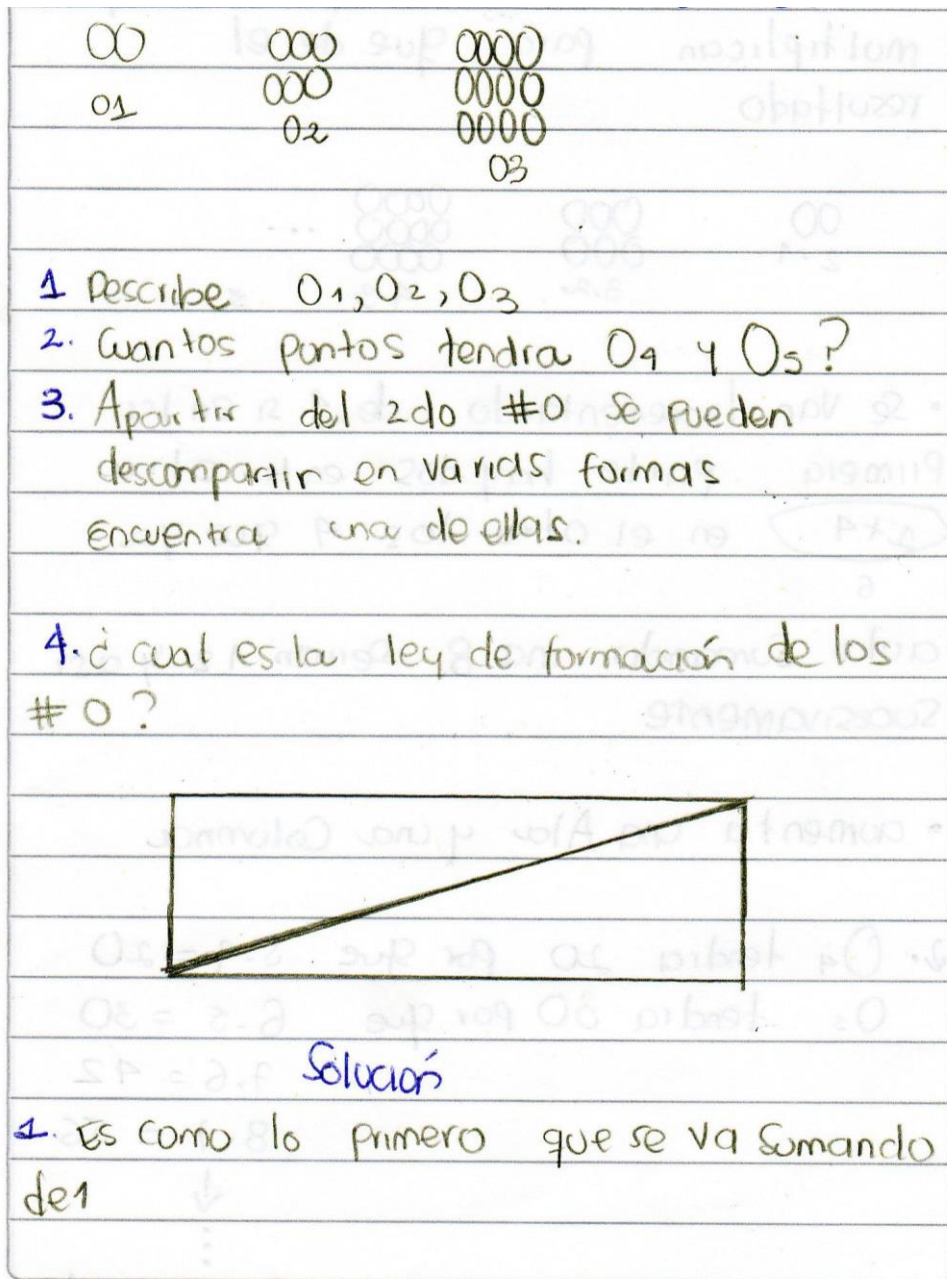 00 000 0000
000 0000
01 0000
02
03
1 Describe O1, O2, O3
2. Cuantos puntos tendra O4 y O5?
3. Apartir del 2do #0 se pueden
descompartir en varias formas
encuentra una de ellas.
4. ¿ cual es la ley de formación de los
# 0 ?
Solución
1. Es como lo primero que se va sumando
de1